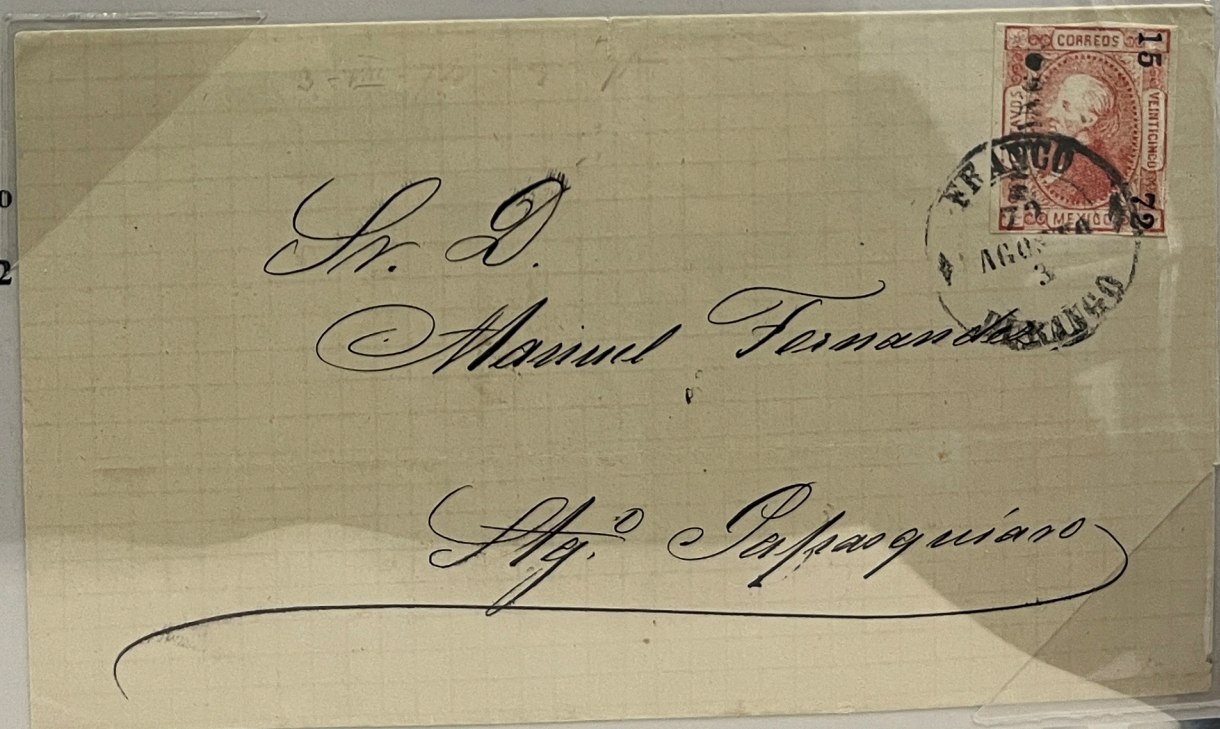 CORREOS
15
VEINTICINCO
72
MEXICO
FRANCO
AGOSTO
3
DURANGO
Sr. D.
Manuel Fernandez
Stgo. Papasquiaro
o
2